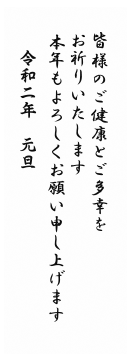 皆様のご健康とご多幸を
お祈りいたします
本年もよろしくお願い申し上げます
令和二年　元旦